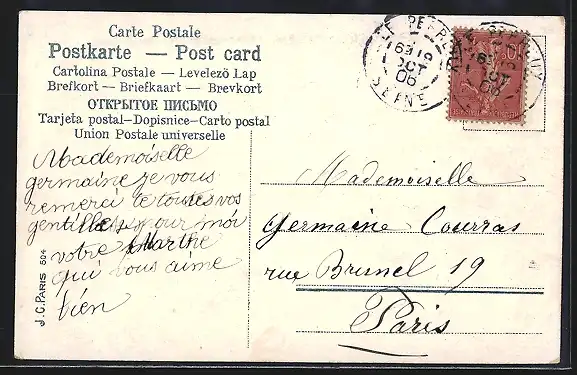 Carte Postale
Postkarte — Post card
Cartolina Postale — Levelező Lap
Brefkort — Briefkaart — Brevkort
ОТКРЫТОЕ ПИСЬМО
Tarjeta postal—Dopisnice—Carto postal
Union Postale universelle
Mademoiselle
germaine je vous
remerci de toutes vos
gentilles pour moi
votre Marthe
qui vous aime
bien
J.C. PARIS 504
16 19
OCT
06
SEINE
Mademoiselle
Germaine Courras
rue Brunel 19
Paris